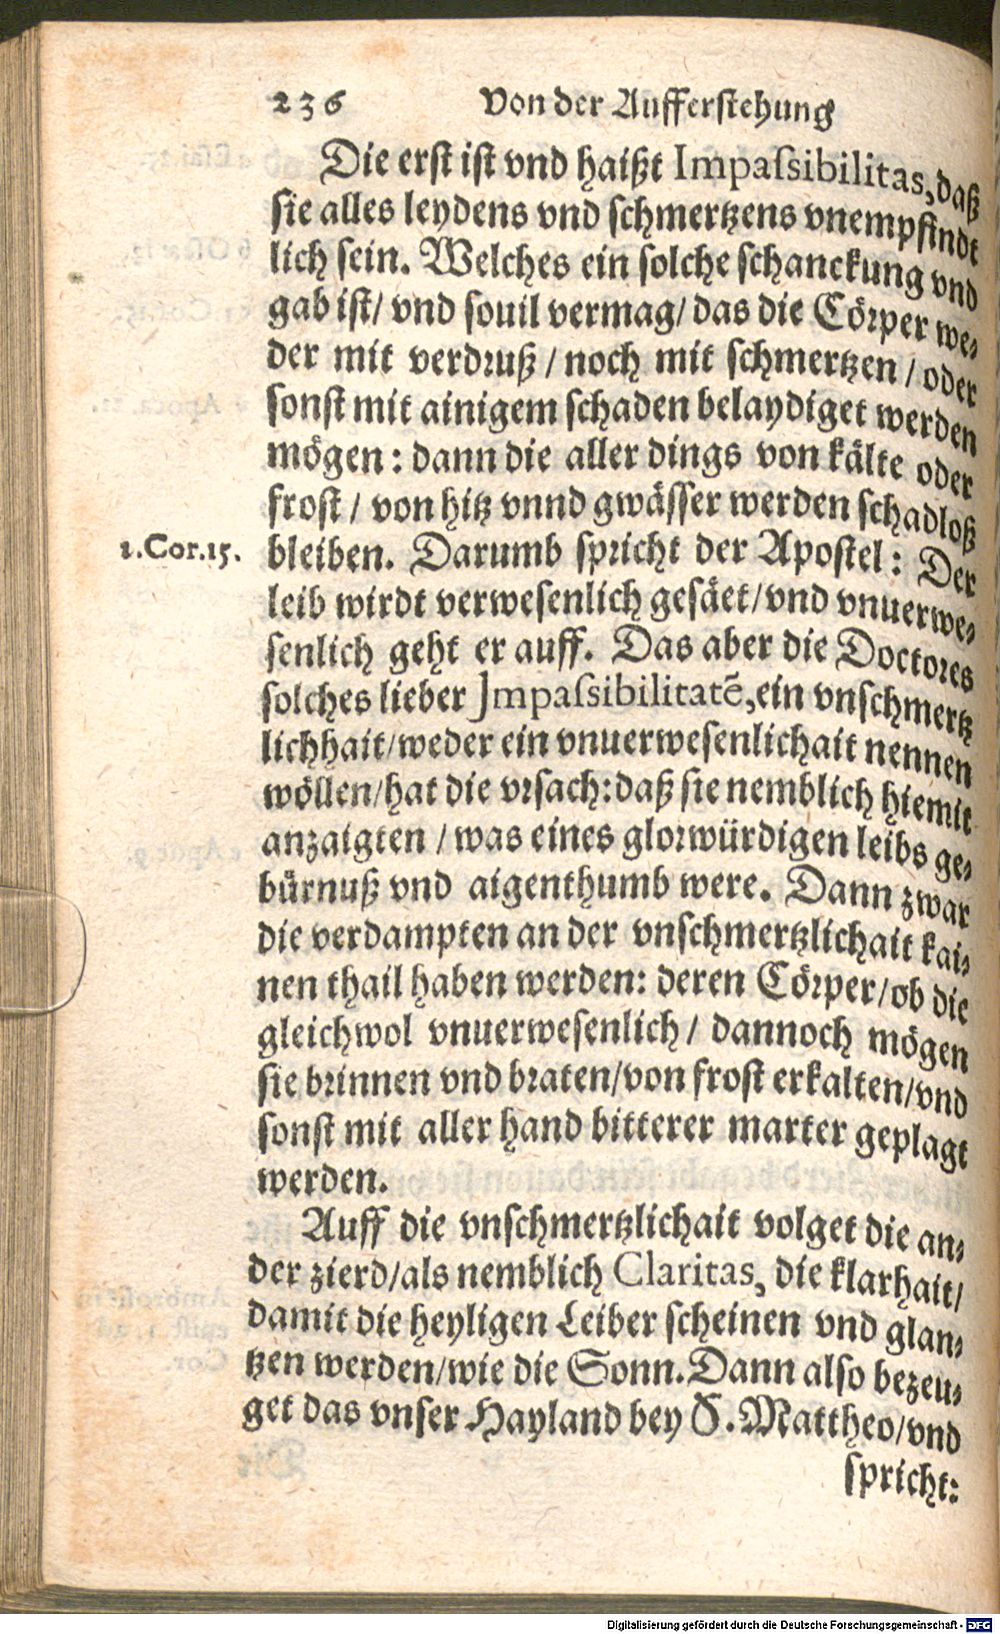 236 Von der Aufferstehung
Die erst ist vnd haißt Impaſsibilitas, daß
sie alles leydens vnd schmertzens vnempfindt
lich sein. Welches ein solche schanckung vnd
gab ist/ vnd souil vermag/ das die Cörper we-
der mit verdruß / noch mit schmertzen / oder
sonst mit ainigem schaden belaydiget werden
mögen: dann die aller dings von kälte oder
frost / von hitz vnnd gwässer werden schadloß
1.Cor.15. bleiben. Darumb spricht der Apostel: Der
leib wirdt verwesenlich gesäet/vnd vnuerwe-
senlich geht er auff. Das aber die Doctores
solches lieber Impaſsibilitatē, ein vnschmertz
lichhait/weder ein vnuerwesenlichait nennen
wöllen/hat die vrsach: daß sie nemblich hiemit
anzaigten / was eines glorwürdigen leibs ge-
bürnuß vnd aigenthumb were. Dann zwar
die verdampten an der vnschmertzlichait kai-
nen thail haben werden: deren Cörper/ob die
gleichwol vnuerwesenlich/ dannoch mögen
sie brinnen vnd braten/von frost erkalten/vnd
sonst mit aller hand bitterer marter geplagt
werden.
Auff die vnschmertzlichait volget die an-
der zierd/als nemblich Claritas, die klarhait/
damit die heyligen Leiber scheinen vnd glan-
tzen werden/wie die Sonn. Dann also bezeu-
get das vnser Hayland bey S. Mattheo/vnd
spricht:
Digitalisierung gefördert durch die Deutsche Forschungsgemeinschaft - DFG